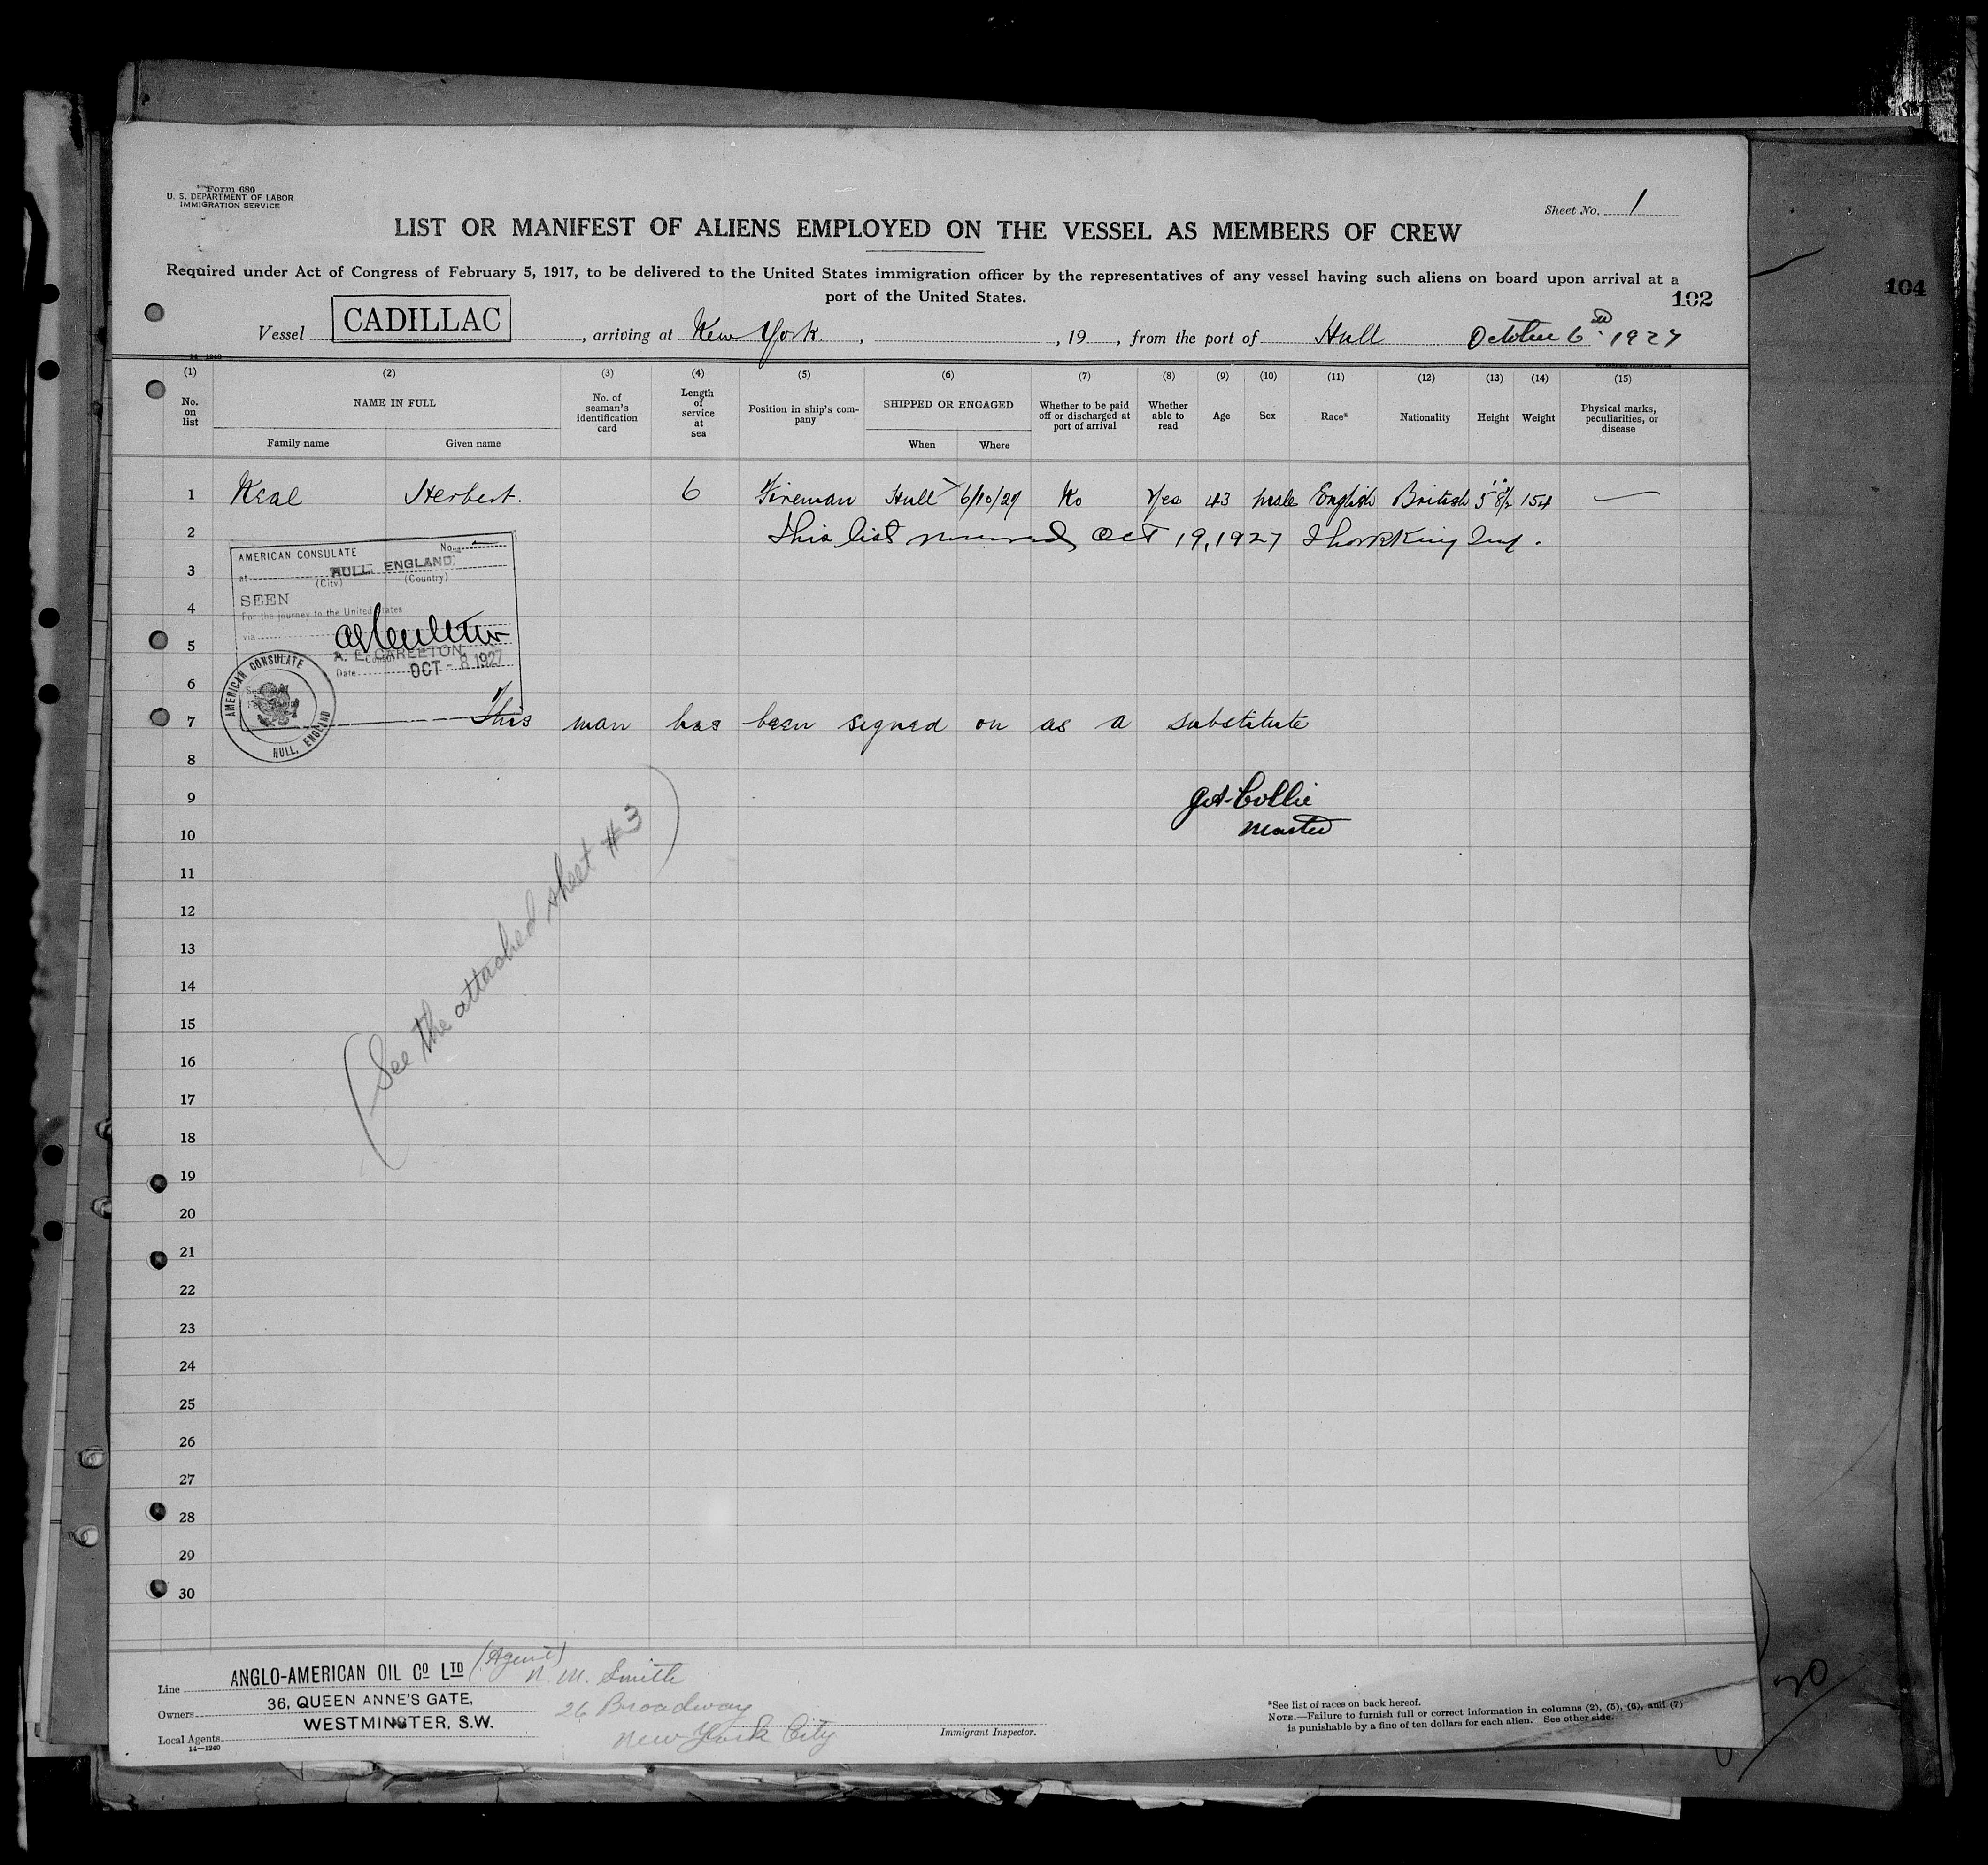 Form 680
U. S. DEPARTMENT OF LABOR
IMMIGRATION SERVICE
Sheet No. 1
LIST OR MANIFEST OF ALIENS EMPLOYED ON THE VESSEL AS MEMBERS OF CREW
Required under Act of Congress of February 5, 1917, to be delivered to the United States immigration officer by the representatives of any vessel having such aliens on board upon arrival at a
port of the United States.
102
104
Vessel CADILLAC, arriving at New York, , 19 , from the port of Hull October 6 1927
14—1240
(1) (2) (3) (4) (5) (6) (7) (8) (9) (10) (11) (12) (13) (14) (15)
No. on list
NAME IN FULL
Family name Given name
No. of seaman's identification card
Length of service at sea
Position in ship's company
SHIPPED OR ENGAGED
When Where
Whether to be paid off or discharged at port of arrival
Whether able to read
Age
Sex
Race*
Nationality
Height
Weight
Physical marks, peculiarities, or disease
1 Neal Herbert. 6 Fireman Hull 6/10/27 No Yes 43 male English British 5' 8½" 154 —
2 This list Oct 19, 1927
AMERICAN CONSULATE No.
at HULL. ENGLAND.
(City) (Country)
SEEN
For the journey to the United States
via
A. E. CARLETON
Consul
Date OCT - 8 1927
AMERICAN CONSULATE
HULL, ENGLAND
3
4
5
6
7 This man has been signed on as a substitute
8
9 Collie
10 Master
11
12
13
14
15
16
17
18
19
20
21
22
23
24
25
26
27
28
29
30
(See the attached sheet #3)
Line ANGLO-AMERICAN OIL CO LTD (Agent)
N. M. Smith
Owners 36, QUEEN ANNE'S GATE,
26 Broadway
WESTMINSTER, S.W.
New York City
Local Agents
14—1240
Immigrant Inspector.
*See list of races on back hereof.
NOTE.—Failure to furnish full or correct information in columns (2), (5), (6), and (7)
is punishable by a fine of ten dollars for each alien. See other side.
20